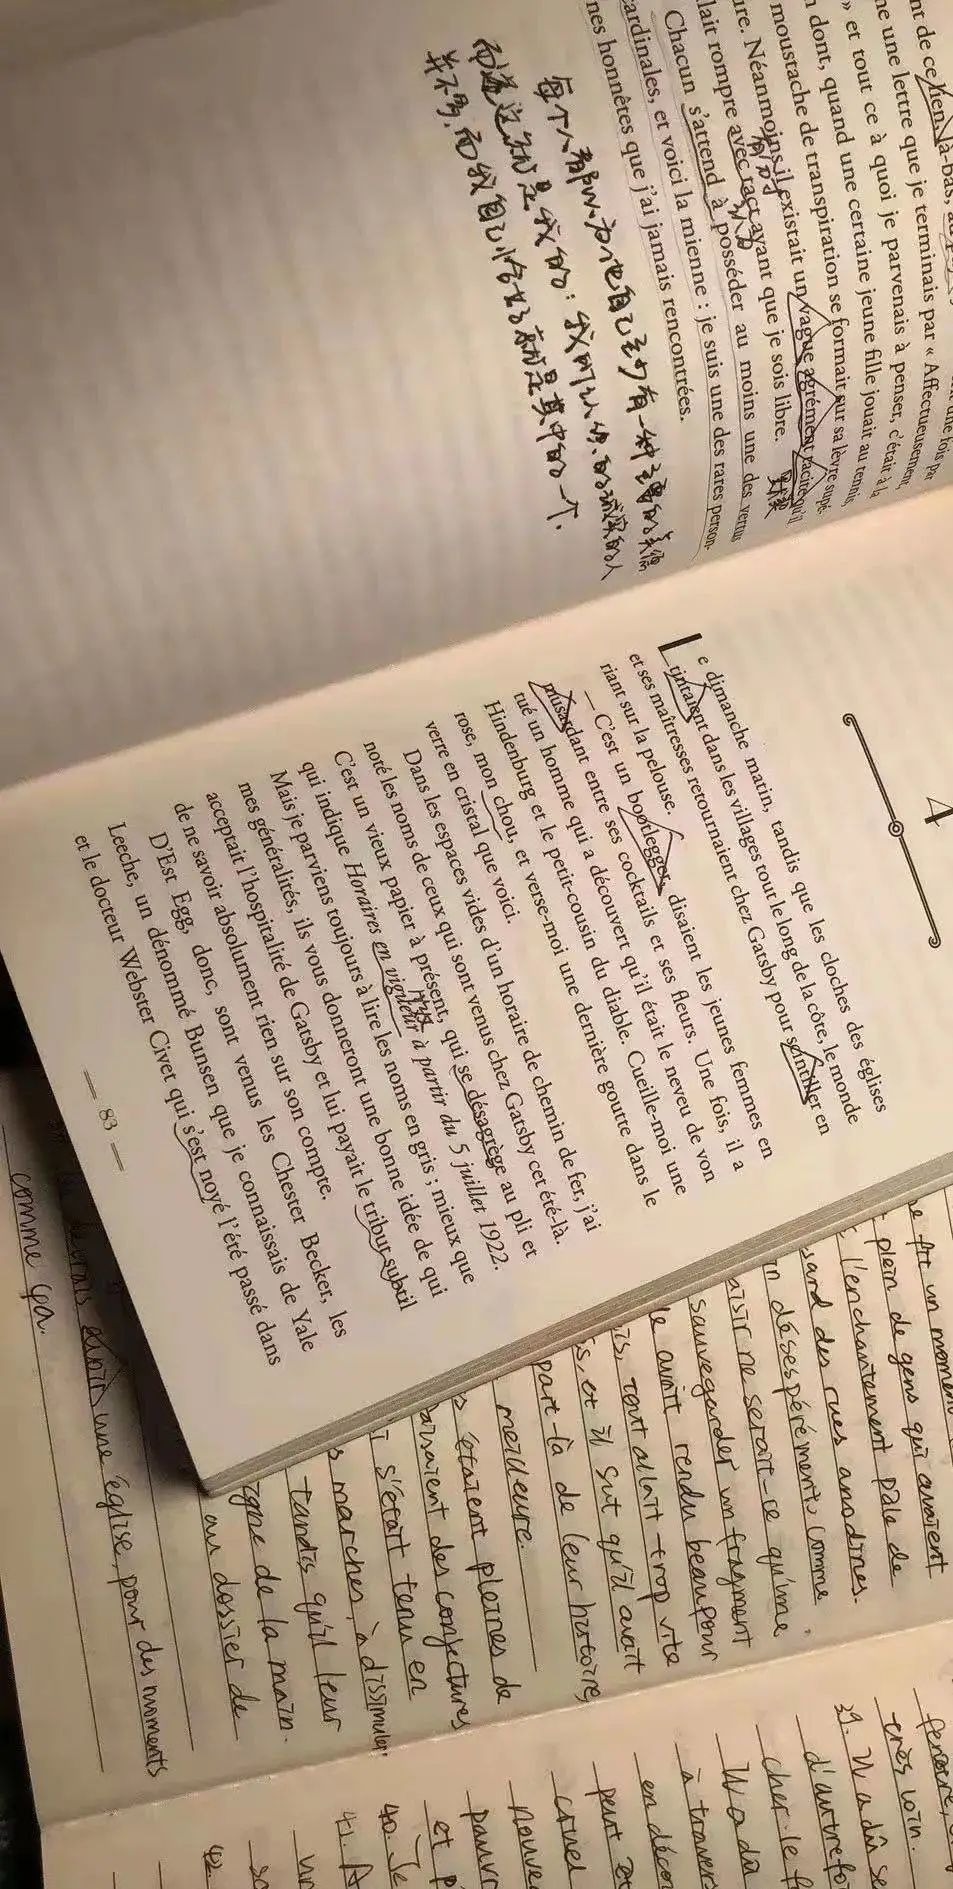 nt de ce lien là-bas,
ne une lettre que je terminais par « Affectueusement,
» et tout ce à quoi je parvenais à penser, c'était à la
n dont, quand une certaine jeune fille jouait au tennis,
moustache de transpiration se formait sur sa lèvre supé
ure. Néanmoins il existait un vague agrément tacite qu'il
lait rompre avec tact avant que je sois libre.
默契
认为
Chacun s'attend à posséder au moins une des vertus
cardinales, et voici la mienne : je suis une des rares person-
nes honnêtes que j'ai jamais rencontrées.
每个人都以为他自己至少有一种主要的美德
而这就是我的：我所认识的诚实的人
并不多，而我自己恰好就是其中的一个.
4
Le dimanche matin, tandis que les cloches des églises
tintaient dans les villages tout le long de la côte, le monde
et ses maîtresses retournaient chez Gatsby pour scintiller en
riant sur la pelouse.
— C'est un bootlegger, disaient les jeunes femmes en
musardant entre ses cocktails et ses fleurs. Une fois, il a
tué un homme qui a découvert qu'il était le neveu de von
Hindenburg et le petit-cousin du diable. Cueille-moi une
rose, mon chou, et verse-moi une dernière goutte dans le
verre en cristal que voici.
Dans les espaces vides d'un horaire de chemin de fer, j'ai
noté les noms de ceux qui sont venus chez Gatsby cet été-là.
C'est un vieux papier à présent, qui se désagrège au pli et
qui indique Horaires en vigueur à partir du 5 juillet 1922.
Mais je parviens toujours à lire les noms en gris ; mieux que
mes généralités, ils vous donneront une bonne idée de qui
acceptait l'hospitalité de Gatsby et lui payait le tribut subtil
de ne savoir absolument rien sur son compte.
D'Est Egg, donc, sont venus les Chester Becker, les
Leeche, un dénommé Bunsen que je connaissais de Yale
et le docteur Webster Civet qui s'est noyé l'été passé dans
— 83 —
un moment
plein de gens qui avaient
l'enchantement pâle de
sand des rues anodines.
n désespérément, comme
aisir ne serait-ce qu'une
sauvegarder un fragment
le avait rendu beau pour
is, tout allait trop vite
s, et il sut qu'il avait
part-là de leur histoire,
meilleure.
s étaient pleines de
aisaient des conjectures
i s'était tenu en
s marches, à dissimuler
tandis qu'il leur
igne de la main.
au dossier de
une église, pour des moments
comme ça.
fenêtre,
très loin.
39. Il a dû se
d'autrefoi
cher le
Il a dû
à travers
en décou
peut êt
cruel
nouve
pauvr
et p
40. Je
41. A
un
42.